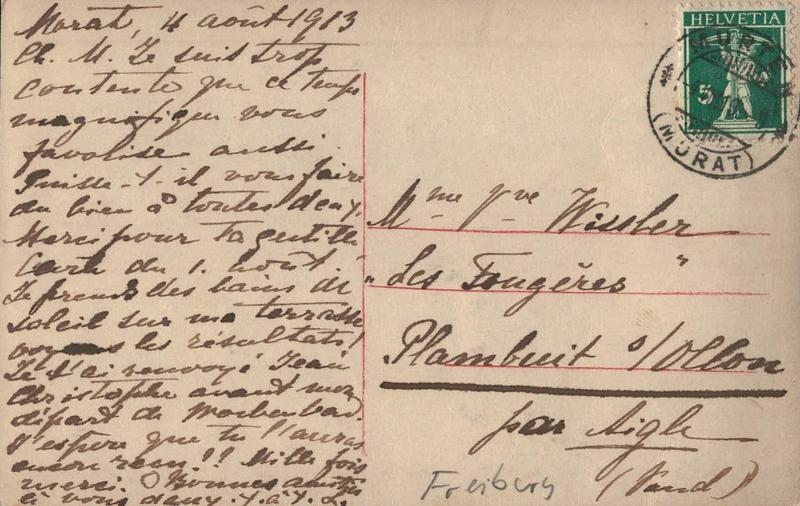 Morat, 4 août 1913
Ch. M. Je suis trop
contente que ce temps
magnifique vous
favorise aussi.
Puisse-t-il vous faire
du bien à toutes deux.
Merci pour ta gentille
carte du 1. Août.
Je prends des bains de
soleil sur ma terrasse
voyons les résultats!
Je t'ai renvoyé Jean
Christophe avant mon
départ de
J'espère que tu l'auras
encore reçu!! Mille fois
merci. Bonnes amitiés
à vous deux.
HELVETIA
5
MURTEN
(MORAT)
Mme Vve Wissler
"Les Fougères"
Plambuit s/Ollon
par Aigle
(Vaud)
Freiburg